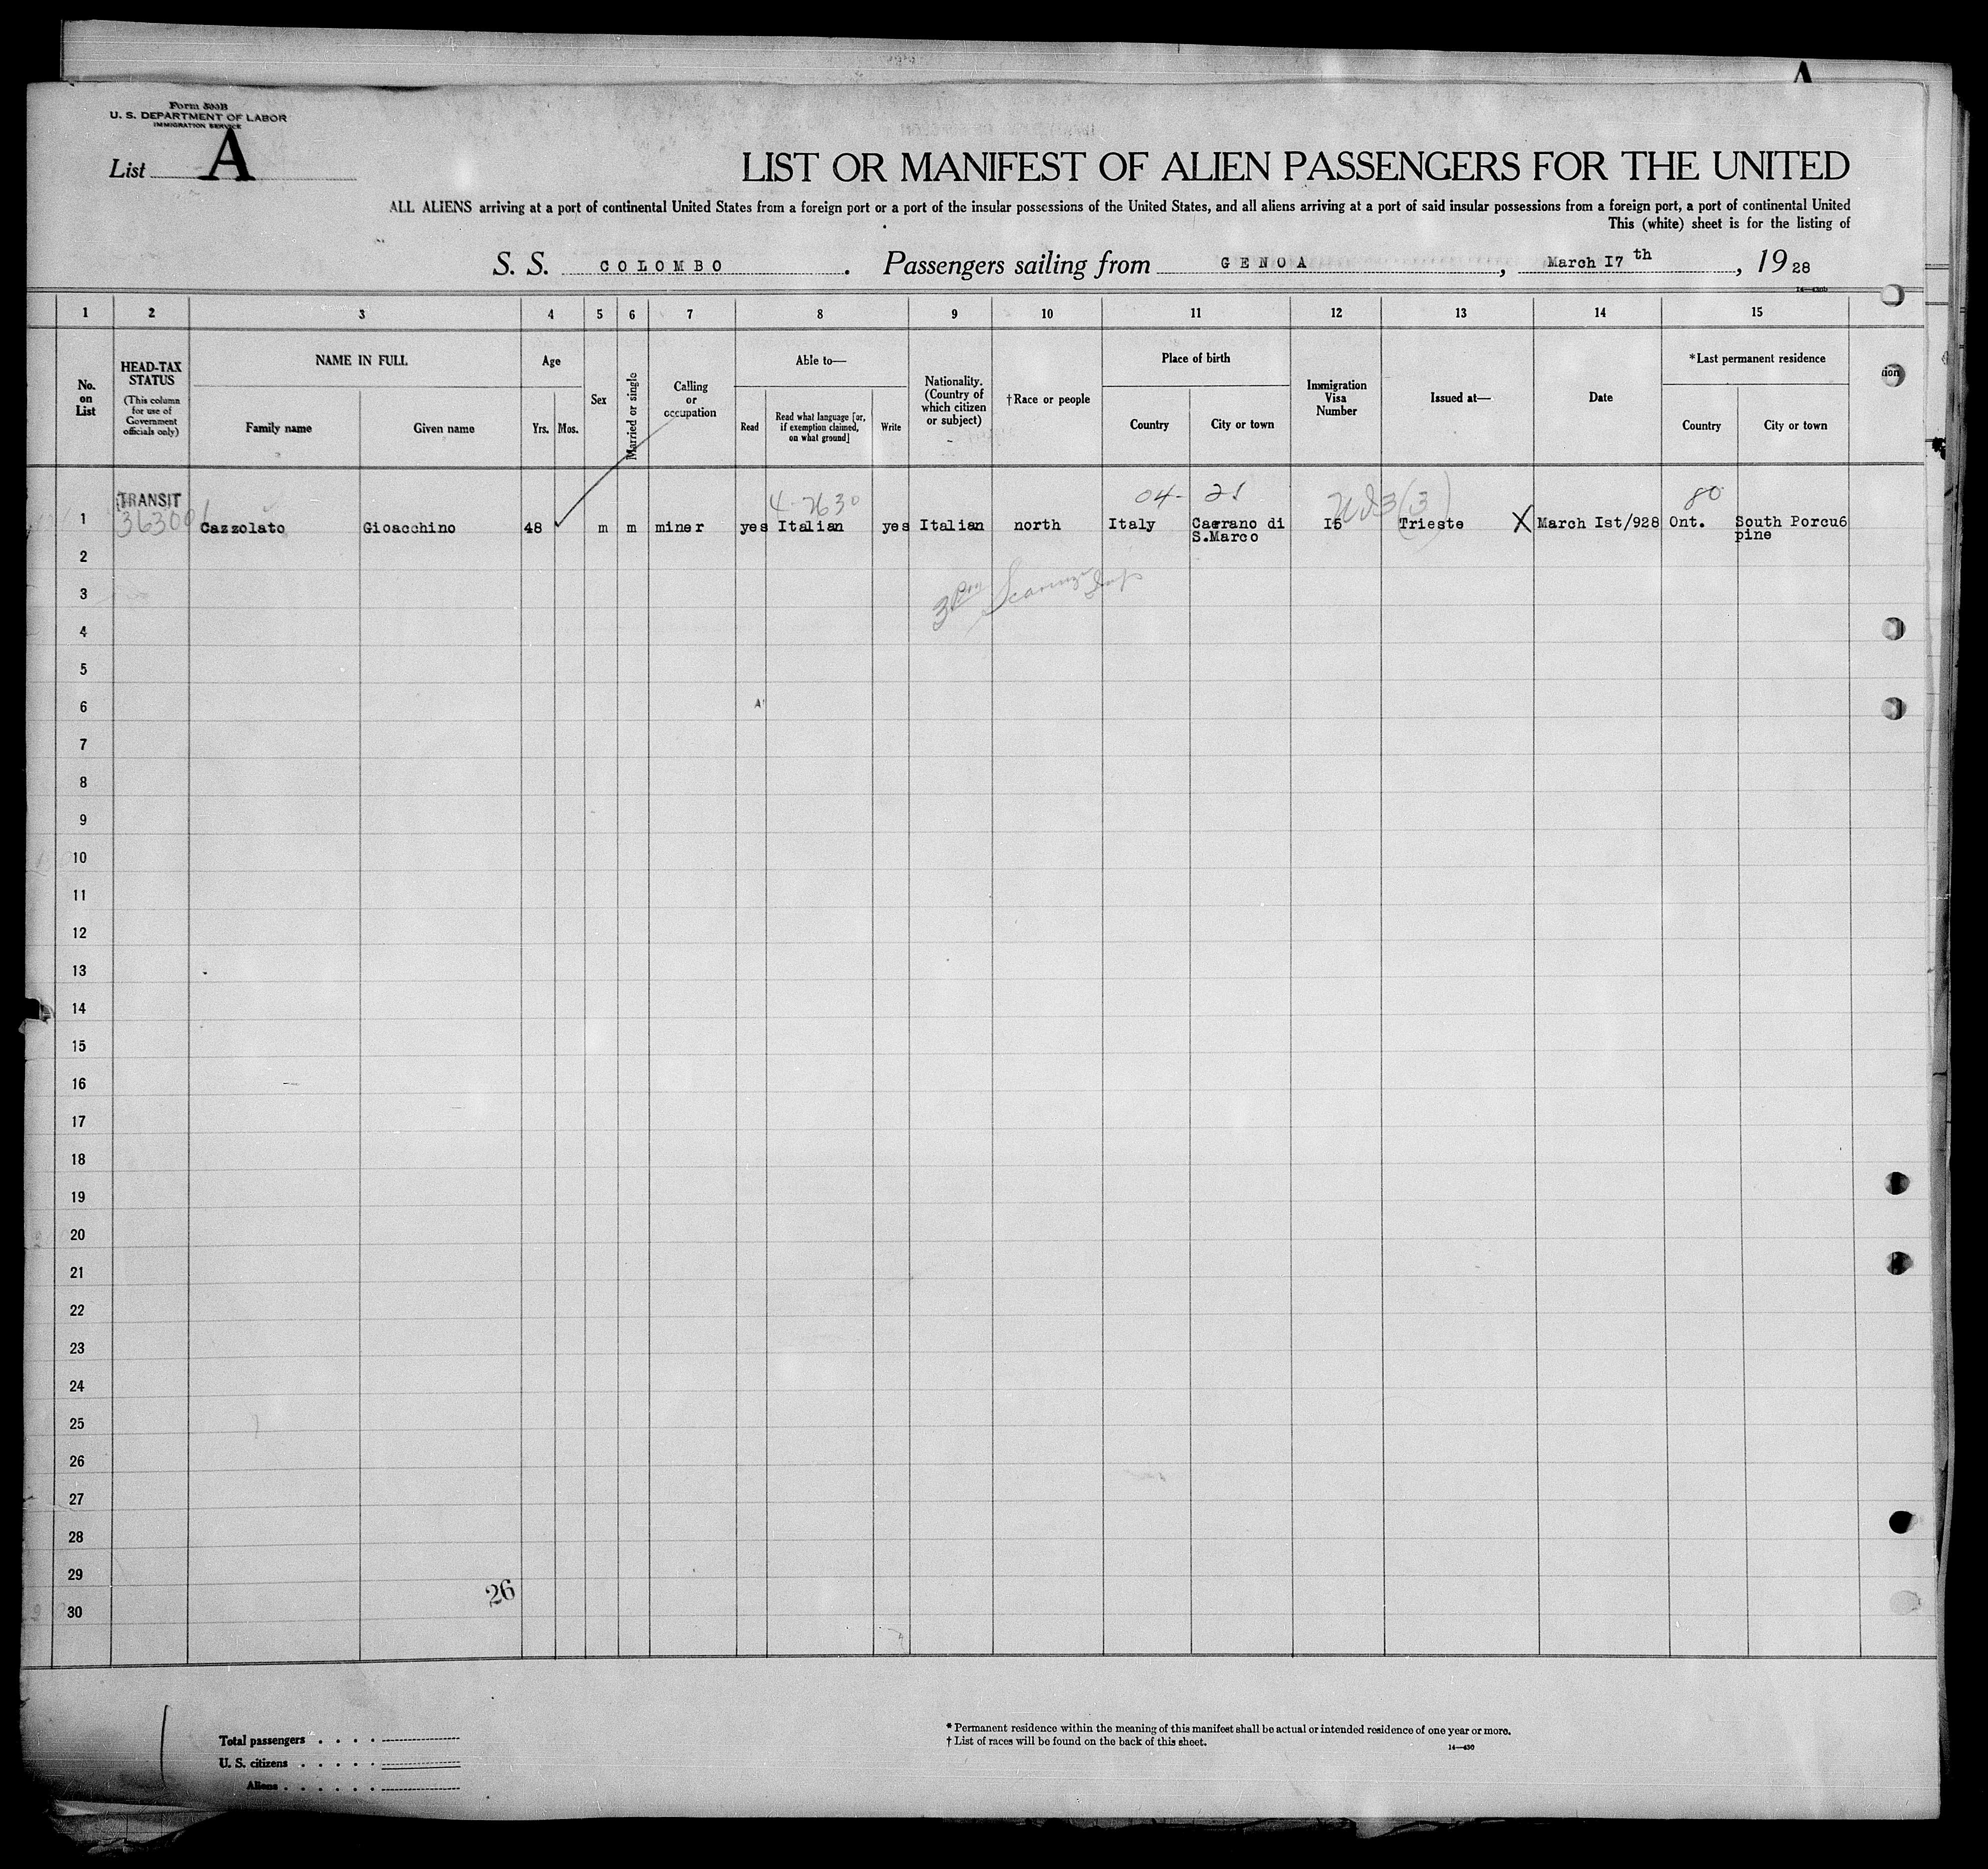 A
Form 500B
U. S. DEPARTMENT OF LABOR
IMMIGRATION SERVICE
List A
LIST OR MANIFEST OF ALIEN PASSENGERS FOR THE UNITED
ALL ALIENS arriving at a port of continental United States from a foreign port or a port of the insular possessions of the United States, and all aliens arriving at a port of said insular possessions from a foreign port, a port of continental United
This (white) sheet is for the listing of
S. S. COLOMBO. Passengers sailing from GENOA, March I7 th, 19 28
1 2 3 4 5 6 7 8 9 10 11 12 13 14 15
No. on List
HEAD-TAX STATUS
(This column for use of Government officials only)
NAME IN FULL
Family name
Given name
Age
Yrs. Mos.
Sex
Married or single
Calling or occupation
Able to—
Read
Read what language [or, if exemption claimed, on what ground]
Write
Nationality. (Country of which citizen or subject)
†Race or people
Place of birth
Country
City or town
Immigration Visa Number
Issued at—
Date
*Last permanent residence
Country
City or town
tion
TRANSIT
4-2630 04- 21 80
36300
1 Cazzolato Gioacchino 48 m m miner yes Italian yes Italian north Italy Caerano di I5 Trieste X March Ist/928 Ont. South Porcu6
S.Marco pine
2
3
4
5
6
7
8
9
10
11
12
13
14
15
16
17
18
19
20
21
22
23
24
25
26
27
28
29
26
30
Total passengers
U. S. citizens
Aliens
* Permanent residence within the meaning of this manifest shall be actual or intended residence of one year or more.
† List of races will be found on the back of this sheet.
14—430